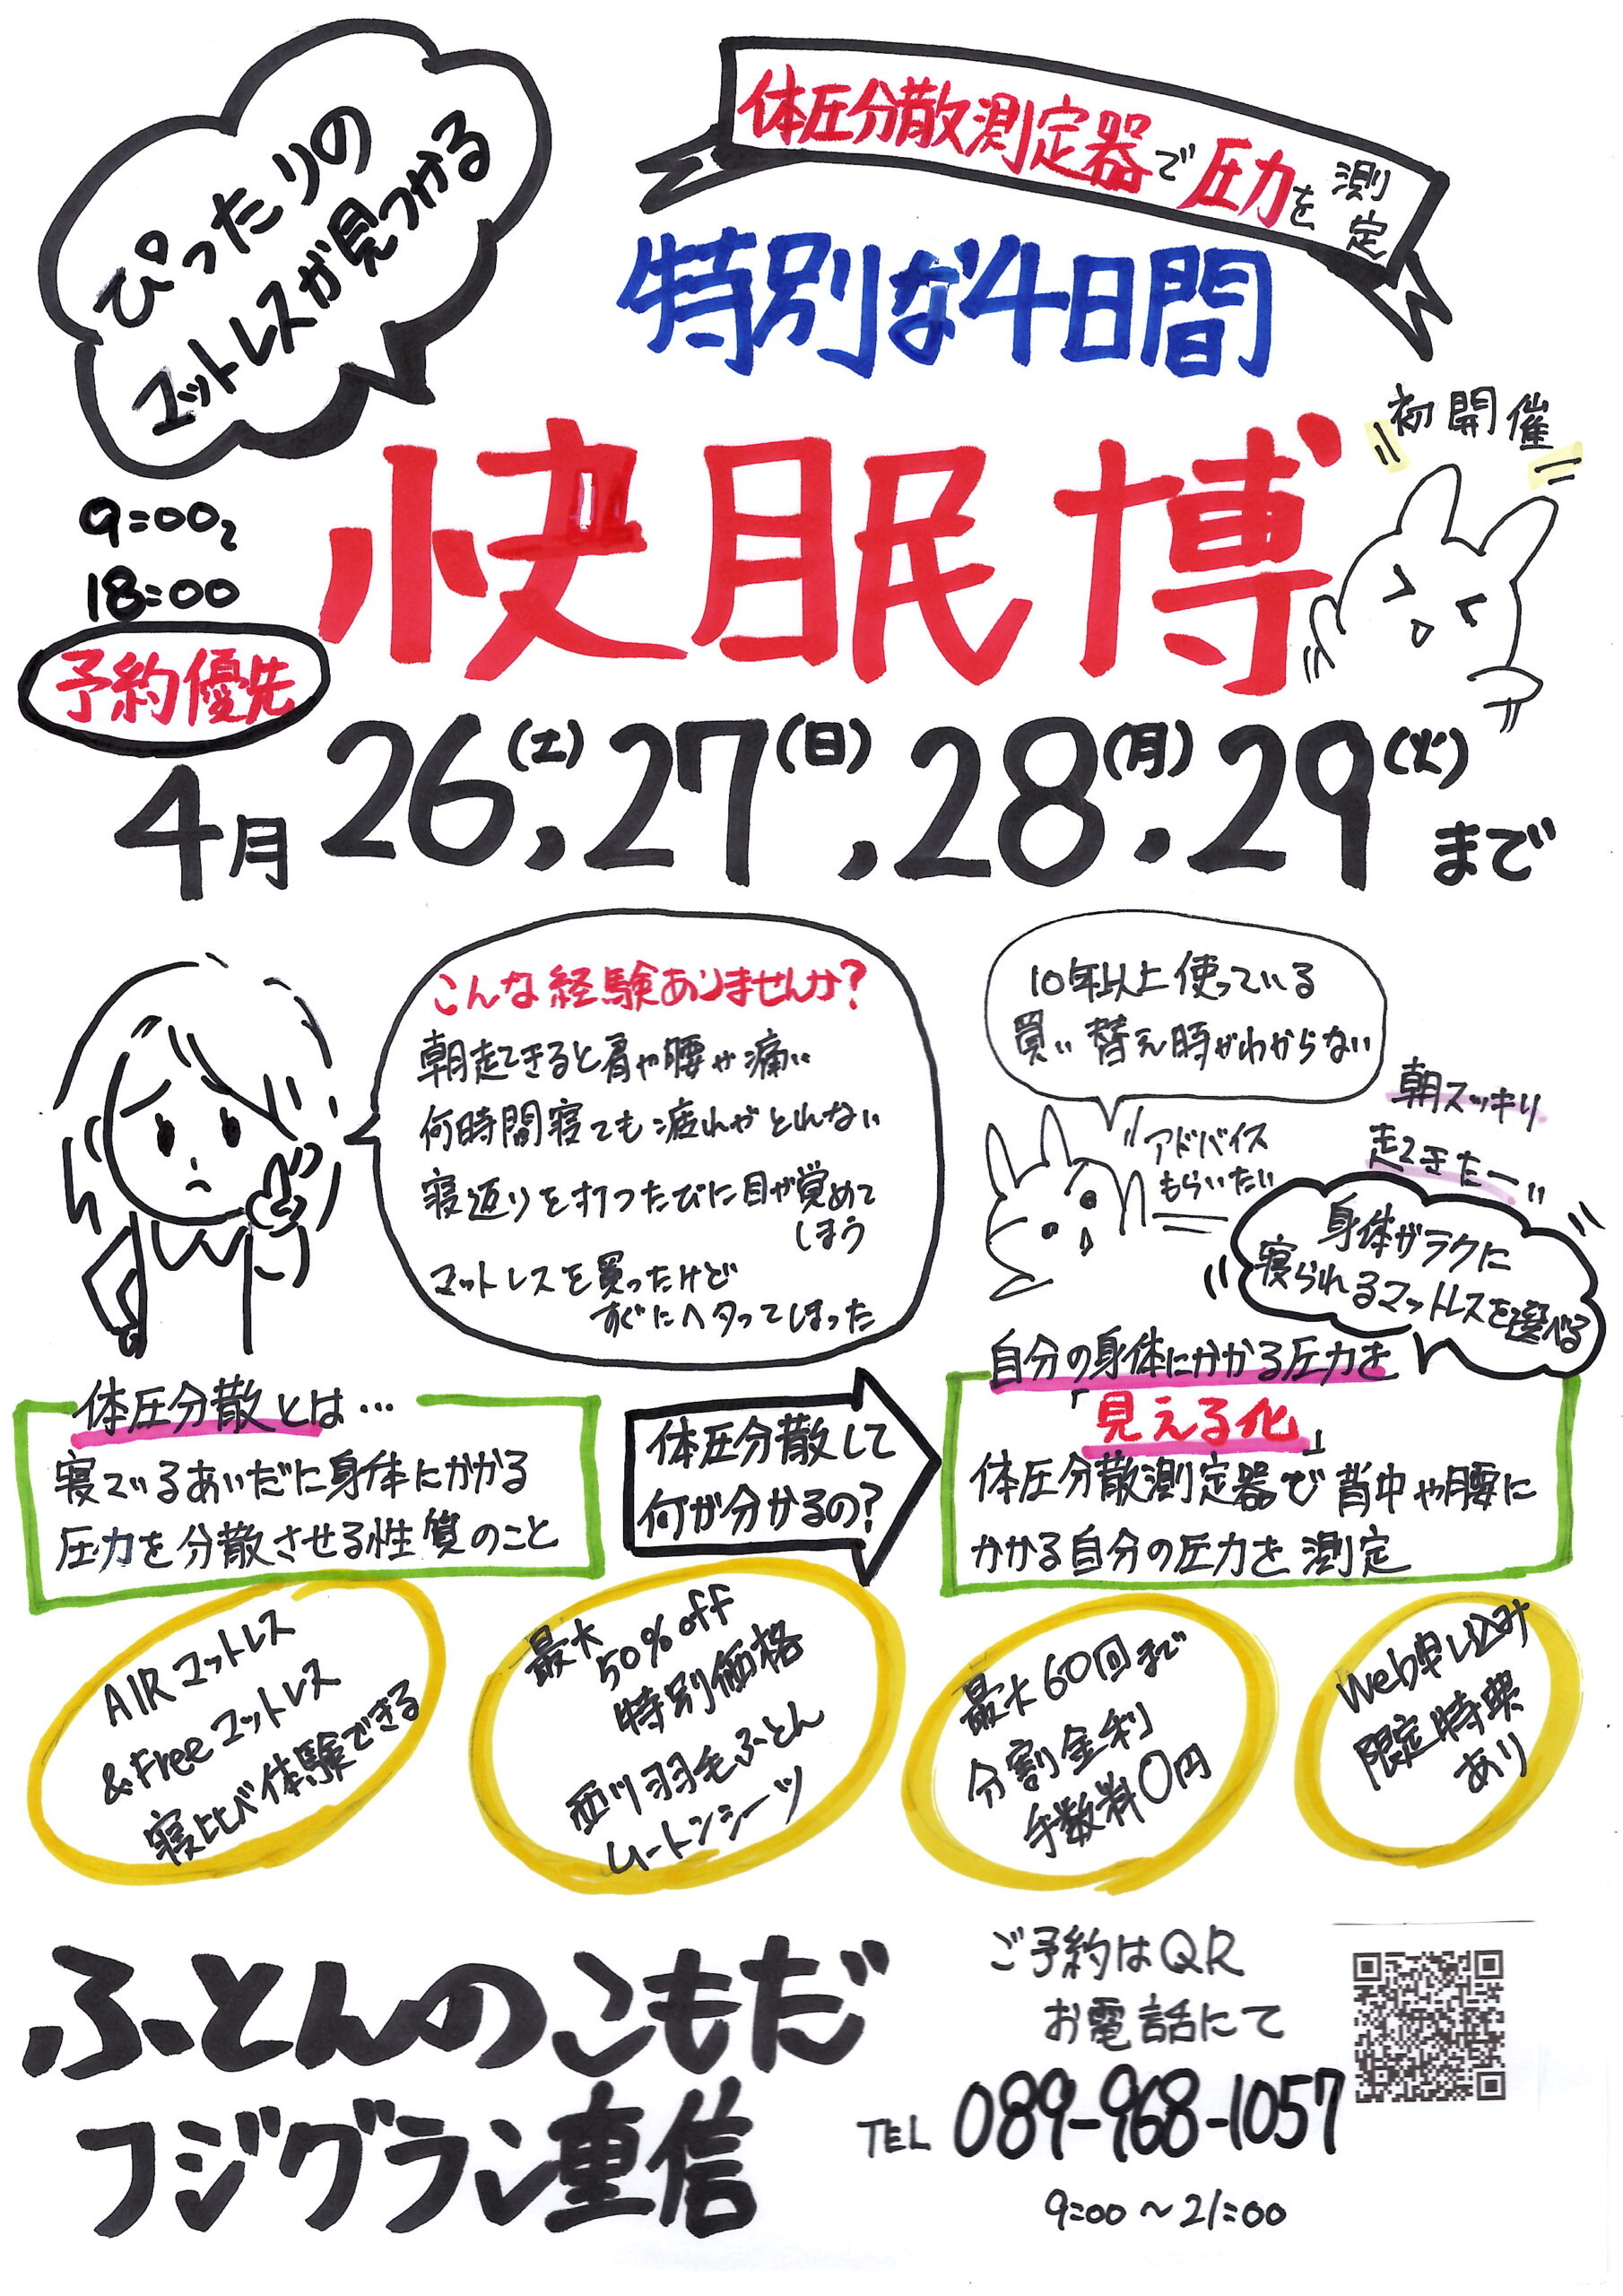 ぴったりの
マットレスが見つかる
体圧分散測定器で圧力を測定
特別な4日間
初開催
快眠博
9:00〜
18:00
予約優先
4月26(土),27(日),28(月).29(火)まで
こんな経験ありませんか?
朝起きると肩や腰が痛い
何時間寝ても疲れがとれない
寝返りを打つたびに目が覚めて
しまう
マットレスを買ったけど
すぐにヘタってしまった
10年以上使っている
買い替え時がわからない
アドバイス
もらいたい
朝スッキリ
起きたーい
身体がラクに
寝られるマットレスを選べる
体圧分散とは…
寝ているあいだに身体にかかる
圧力を分散させる性質のこと
体圧分散して
何が分かるの?
自分の身体にかかる圧力を
「見える化」
体圧分散測定器で背中や腰に
かかる自分の圧力を測定
AIRマットレス
&Freeマットレス
寝比べ体験できる
最大50%off
特別価格
西川羽毛ふとん
ムートンシーツ
最大60回まで
分割金利
手数料0円
Web申し込み
限定特典
あり
ふとんのこもだ
フジグラン重信
ご予約はQR
お電話にて
TEL 089-968-1057
9:00〜21:00